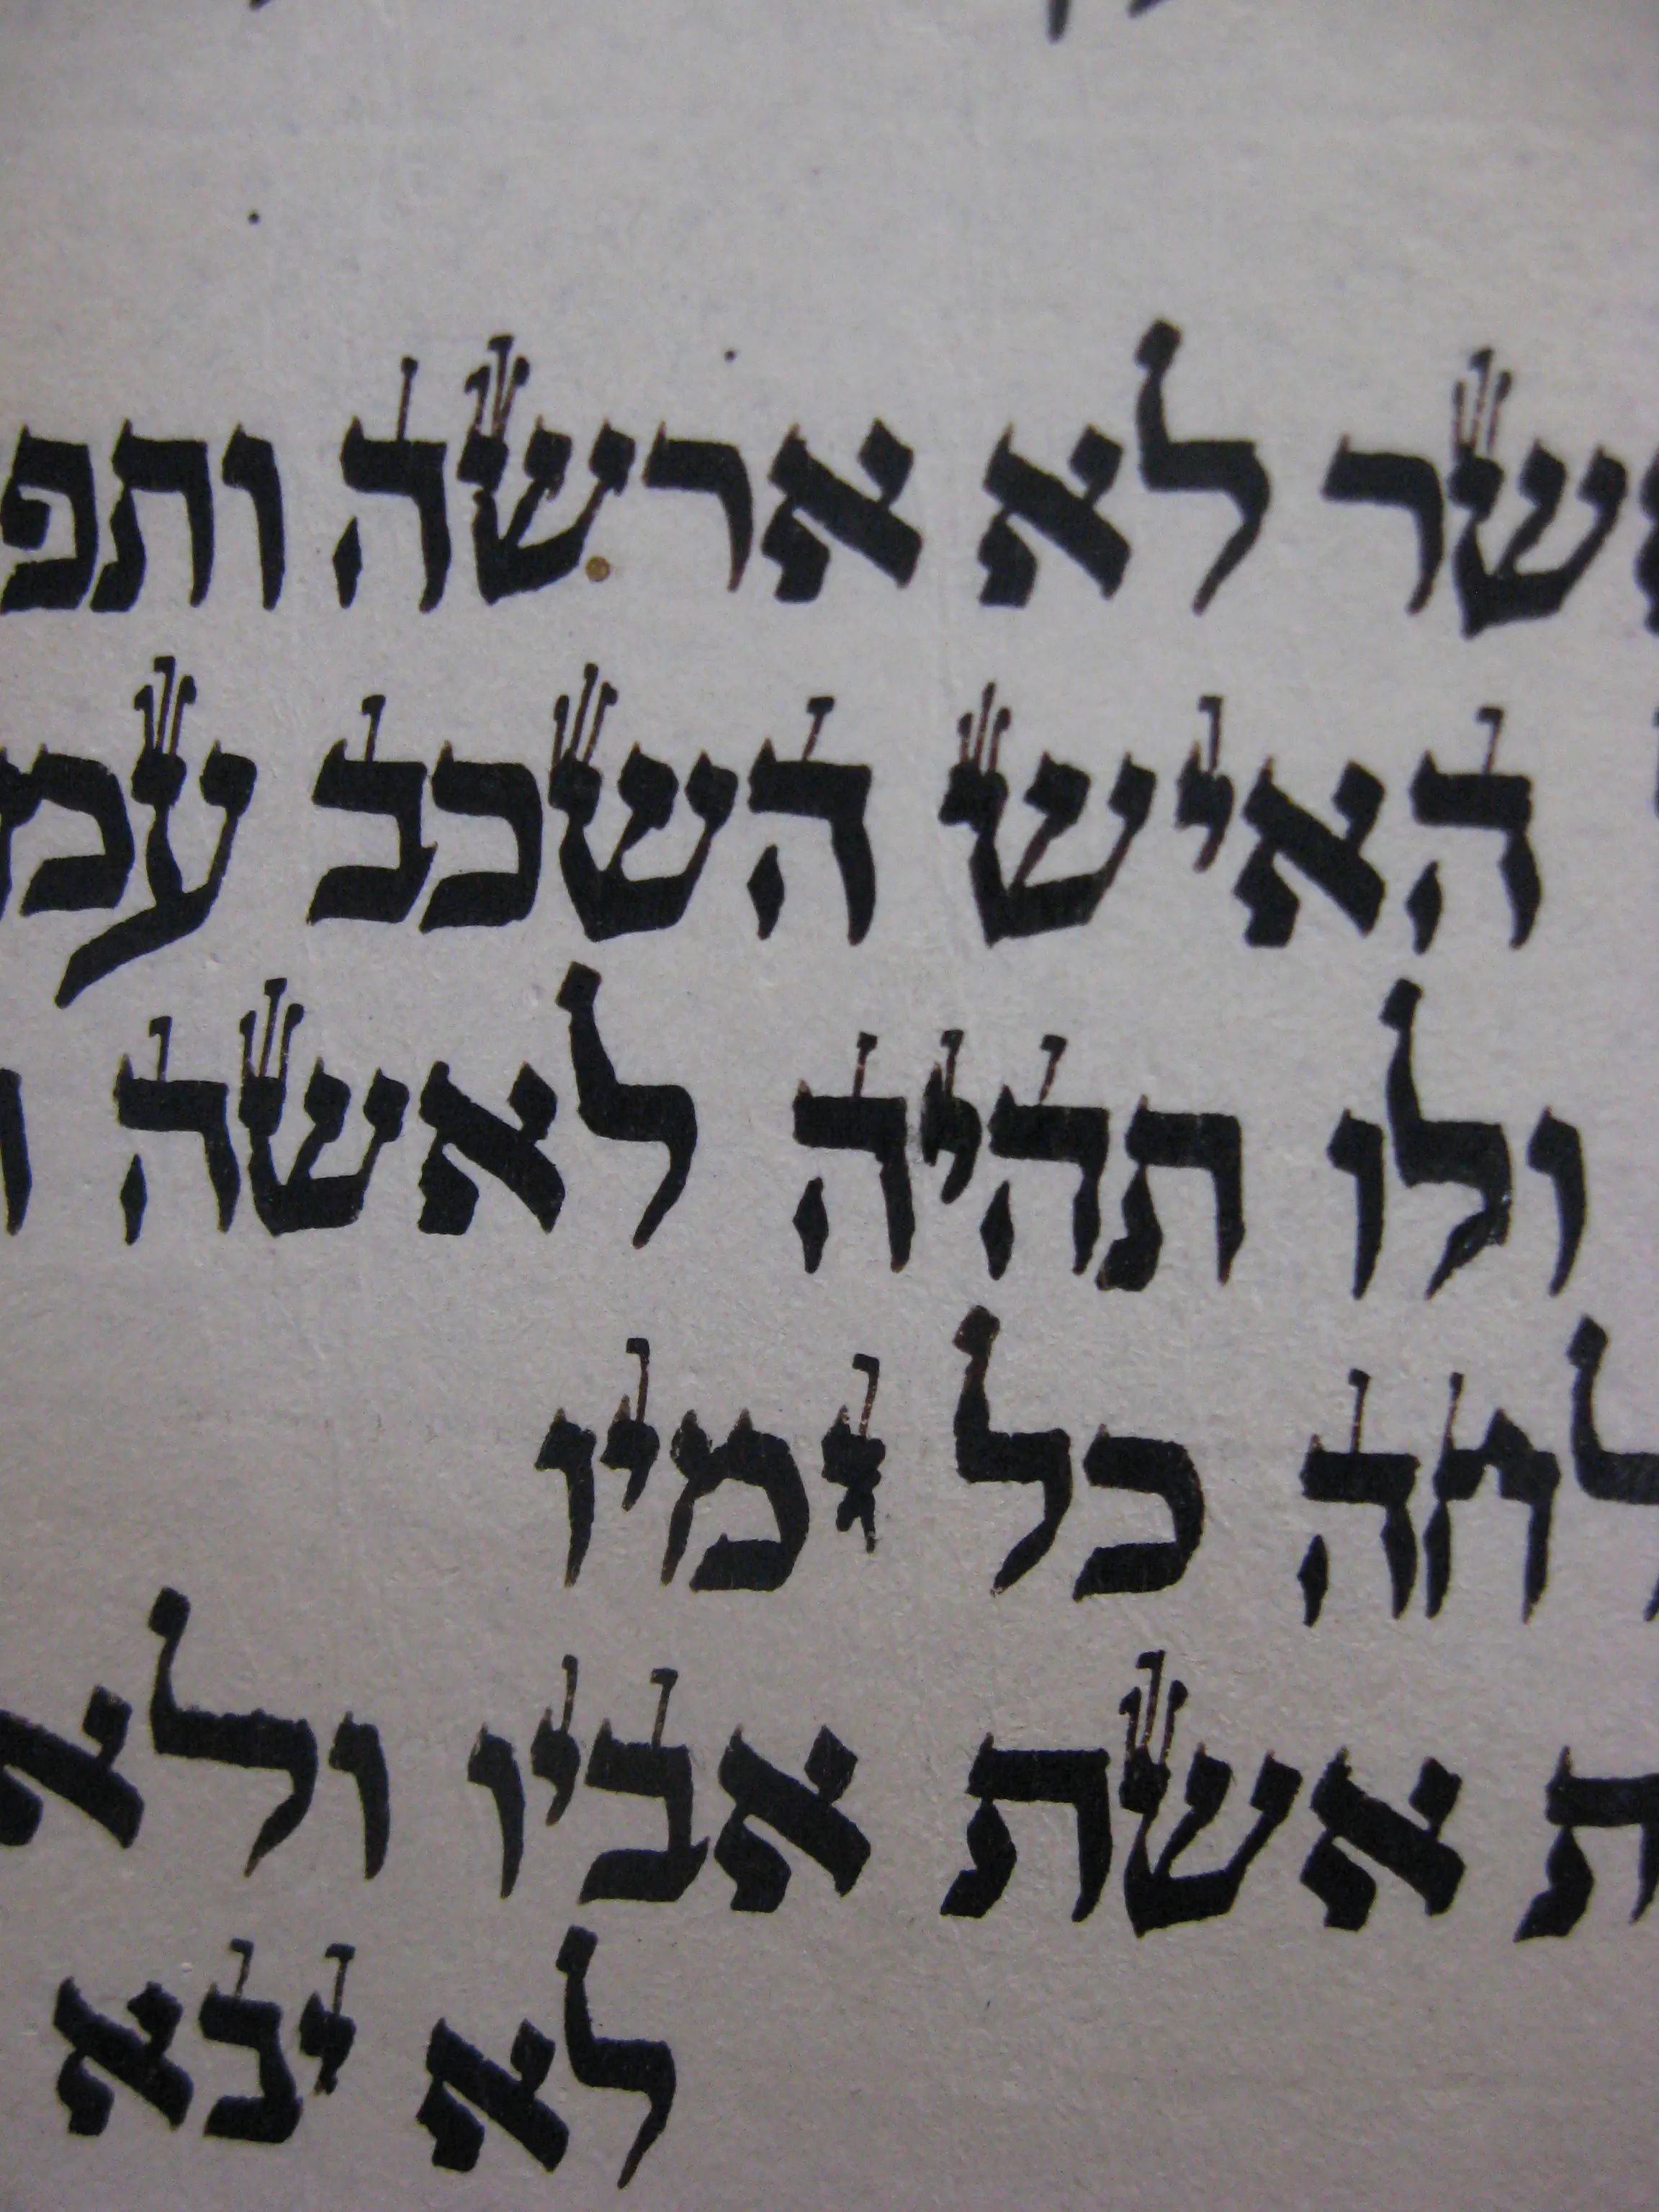 אשר לא ארשה ותפ
האיש השכב עמ
ולו תהיה לאשה
לחה כל ימיו
ת אשת אביו ולא
לא יבא